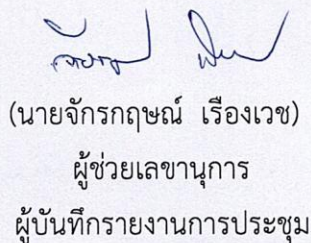 (นายจักรกฤษณ์ เรืองเวช)
ผู้ช่วยเลขานุการ
ผู้บันทึกรายงานการประชุม